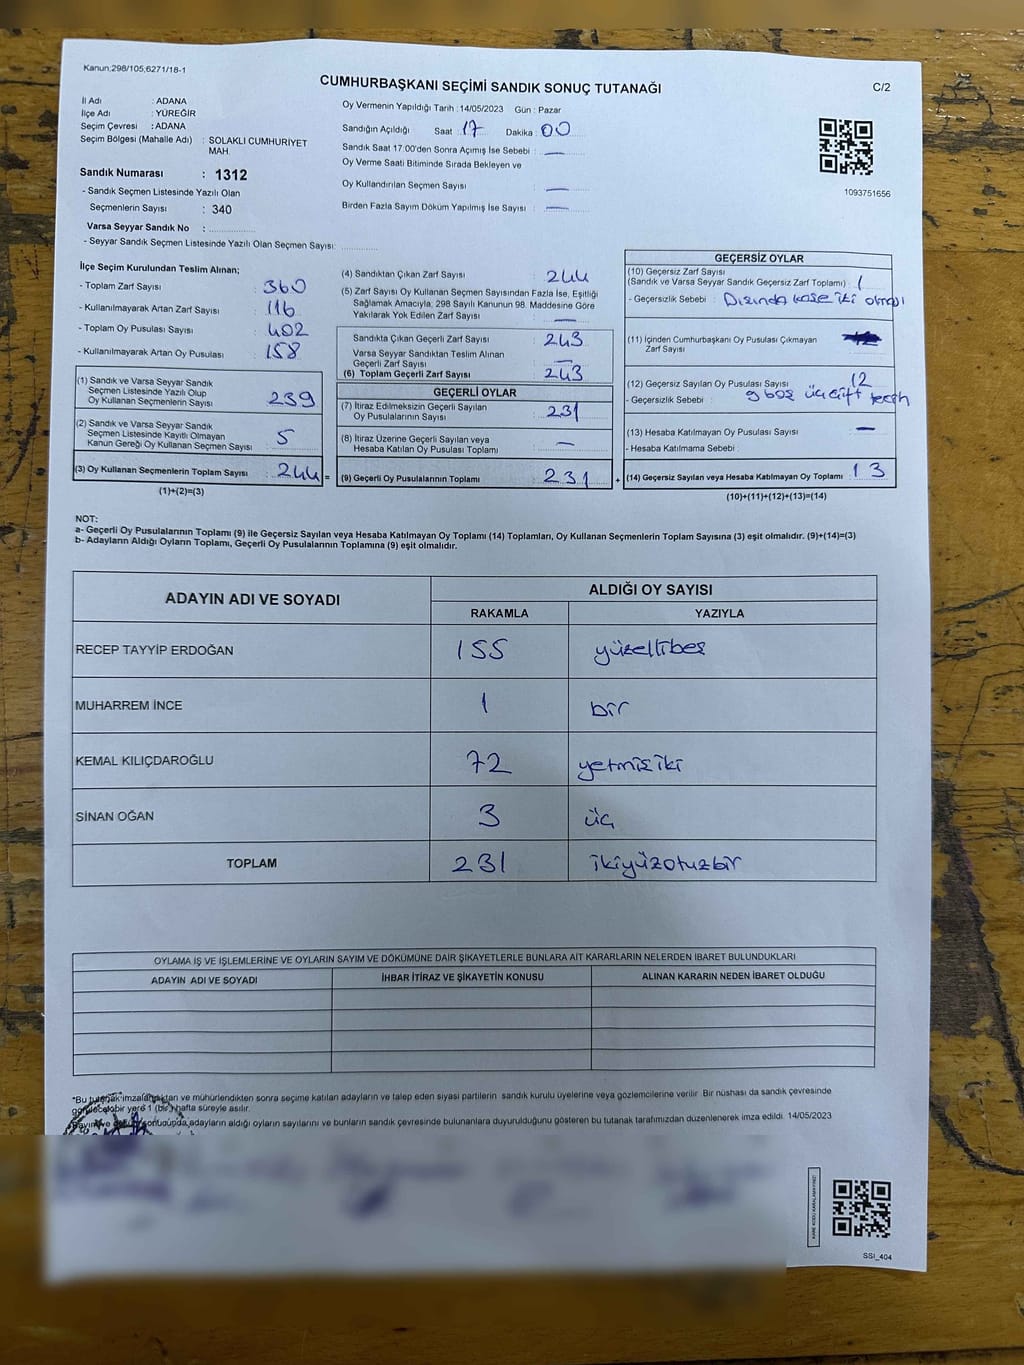 Kanun;298/105;6271/18-1
CUMHURBAŞKANI SEÇİMİ SANDIK SONUÇ TUTANAĞI
C/2
İl Adı : ADANA
İlçe Adı : YÜREĞİR
Seçim Çevresi : ADANA
Seçim Bölgesi (Mahalle Adı) : SOLAKLI CUMHURİYET
MAH.
Sandık Numarası : 1312
- Sandık Seçmen Listesinde Yazılı Olan
Seçmenlerin Sayısı : 340
Varsa Seyyar Sandık No :
- Seyyar Sandık Seçmen Listesinde Yazılı Olan Seçmen Sayısı:
Oy Vermenin Yapıldığı Tarih :14/05/2023 Gün : Pazar
Sandığın Açıldığı Saat : 17 Dakika : 00
Sandık Saat 17:00'den Sonra Açımış İse Sebebi : —
Oy Verme Saati Bitiminde Sırada Bekleyen ve
Oy Kullandırılan Seçmen Sayısı : —
Birden Fazla Sayım Döküm Yapılmış İse Sayısı : —
1093751656
İlçe Seçim Kurulundan Teslim Alınan;
- Toplam Zarf Sayısı : 360
- Kullanılmayarak Artan Zarf Sayısı : 116
- Toplam Oy Pusulası Sayısı : 402
- Kullanılmayarak Artan Oy Pusulası : 158
(1) Sandık ve Varsa Seyyar Sandık
Seçmen Listesinde Yazılı Olup
Oy Kullanan Seçmenlerin Sayısı : 239
(2) Sandık ve Varsa Seyyar Sandık
Seçmen Listesinde Kayıtlı Olmayan
Kanun Gereği Oy Kullanan Seçmen Sayısı : 5
(3) Oy Kullanan Seçmenlerin Toplam Sayısı : 244 =
(1)+(2)=(3)
(4) Sandıktan Çıkan Zarf Sayısı : 244
(5) Zarf Sayısı Oy Kullanan Seçmen Sayısından Fazla İse, Eşitliği
Sağlamak Amacıyla, 298 Sayılı Kanunun 98. Maddesine Göre
Yakılarak Yok Edilen Zarf Sayısı : —
Sandıkta Çıkan Geçerli Zarf Sayısı : 243
Varsa Seyyar Sandıktan Teslim Alınan
Geçerli Zarf Sayısı : —
(6) Toplam Geçerli Zarf Sayısı : 243
GEÇERLİ OYLAR
(7) İtiraz Edilmeksizin Geçerli Sayılan
Oy Pusulalarının Sayısı : 231
(8) İtiraz Üzerine Geçerli Sayılan veya
Hesaba Katılan Oy Pusulası Toplamı : —
(9) Geçerli Oy Pusulalarının Toplamı : 231 +
GEÇERSİZ OYLAR
(10) Geçersiz Zarf Sayısı
(Sandık ve Varsa Seyyar Sandık Geçersiz Zarf Toplamı) : 1
- Geçersizlik Sebebi : Dışında kaşe iki olması
(11) İçinden Cumhurbaşkanı Oy Pusulası Çıkmayan
Zarf Sayısı :
(12) Geçersiz Sayılan Oy Pusulası Sayısı : 12
- Geçersizlik Sebebi : 9 boş üç çift tercih
(13) Hesaba Katılmayan Oy Pusulası Sayısı : —
- Hesaba Katılmama Sebebi :
(14) Geçersiz Sayılan veya Hesaba Katılmayan Oy Toplamı : 13
(10)+(11)+(12)+(13)=(14)
NOT:
a- Geçerli Oy Pusulalarının Toplamı (9) ile Geçersiz Sayılan veya Hesaba Katılmayan Oy Toplamı (14) Toplamları, Oy Kullanan Seçmenlerin Toplam Sayısına (3) eşit olmalıdır. (9)+(14)=(3)
b- Adayların Aldığı Oyların Toplamı, Geçerli Oy Pusulalarının Toplamına (9) eşit olmalıdır.
ADAYIN ADI VE SOYADI
ALDIĞI OY SAYISI
RAKAMLA YAZIYLA
RECEP TAYYİP ERDOĞAN 155 yüzellibeş
MUHARREM İNCE 1 bir
KEMAL KILIÇDAROĞLU 72 yetmişiki
SİNAN OĞAN 3 üç
TOPLAM 231 ikiyüzotuzbir
OYLAMA İŞ VE İŞLEMLERİNE VE OYLARIN SAYIM VE DÖKÜMÜNE DAİR ŞİKAYETLERLE BUNLARA AİT KARARLARIN NELERDEN İBARET BULUNDUKLARI
ADAYIN ADI VE SOYADI İHBAR İTİRAZ VE ŞİKAYETİN KONUSU ALINAN KARARIN NEDEN İBARET OLDUĞU
*Bu tutanak imzalandıktan ve mühürlendikten sonra seçime katılan adayların ve talep eden siyasi partilerin sandık kurulu üyelerine veya gözlemcilerine verilir Bir nüshası da sandık çevresinde
görülecek bir yere 1 (bir) hafta süreyle asılır.
Sayım ve döküm sonucunda adayların aldığı oyların sayılarını ve bunların sandık çevresinde bulunanlara duyurulduğunu gösteren bu tutanak tarafımızdan düzenlenerek imza edildi. 14/05/2023
SSI_404